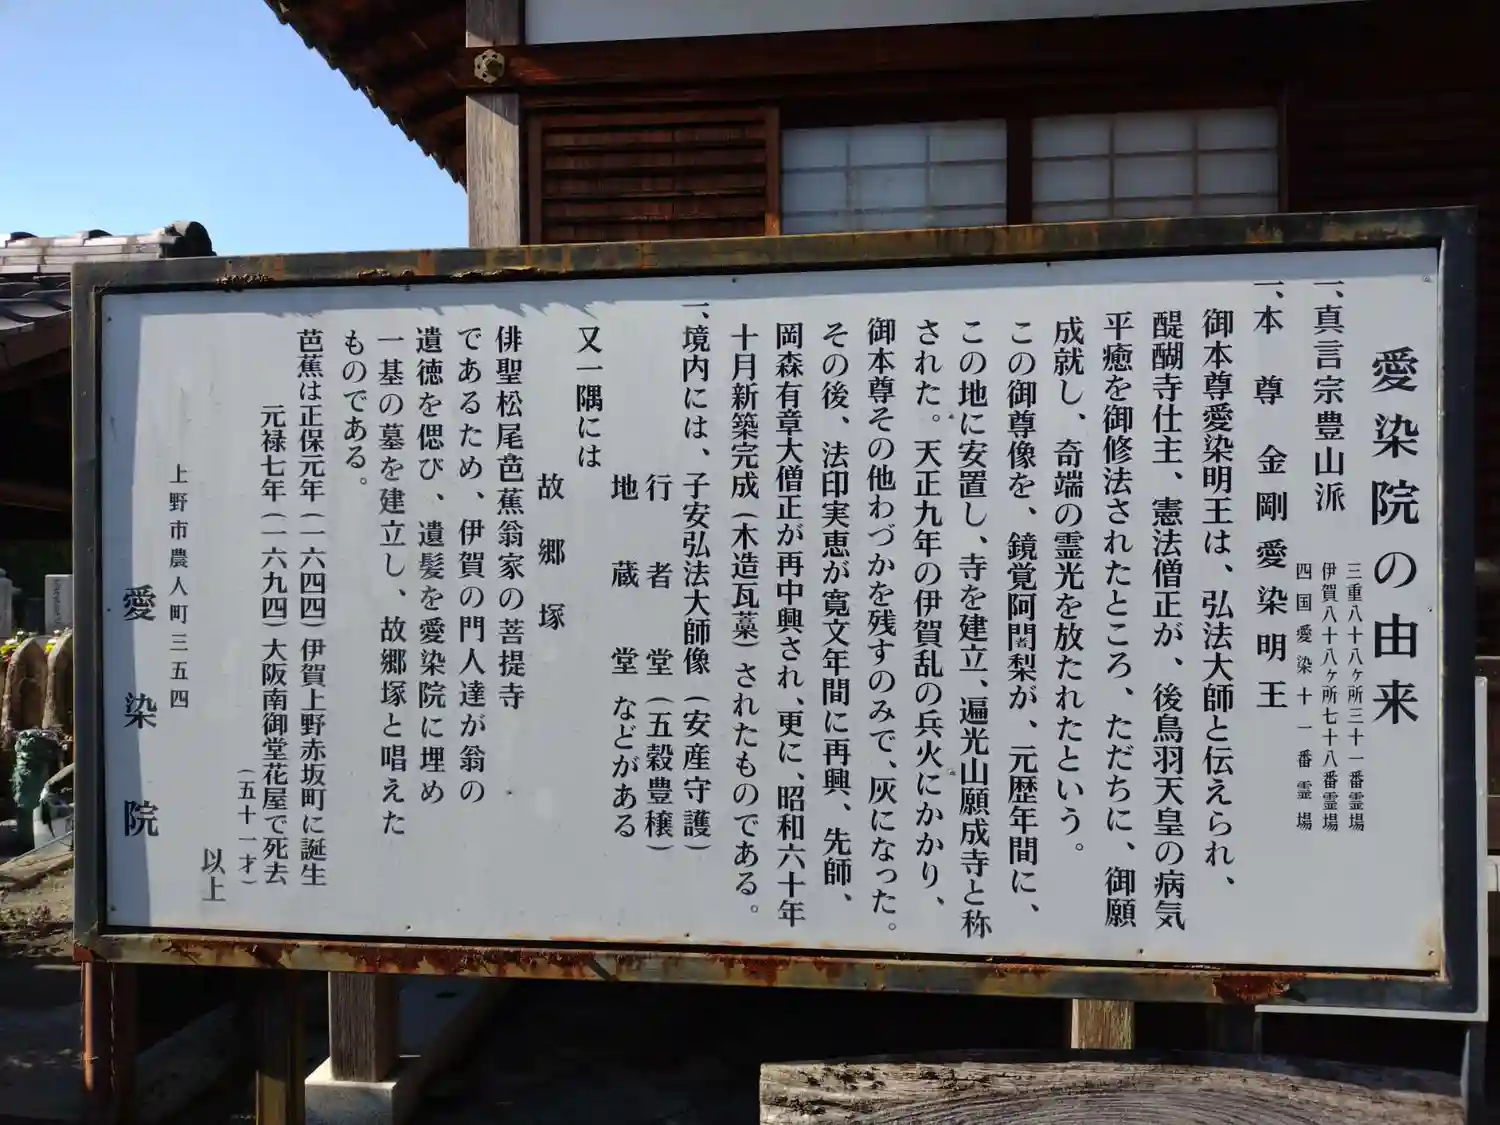 愛染院の由来
一、真言宗豊山派
三重八十八ヶ所三十一番霊場
伊賀八十八ヶ所七十八番霊場
四国愛染十一番霊場
一、本尊 金剛愛染明王
御本尊愛染明王は、弘法大師と伝えられ、
醍醐寺仕主、憲法僧正が、後鳥羽天皇の病気
平癒を御修法されたところ、ただちに、御願
成就し、奇端の霊光を放たれたという。
この御尊像を、鏡覚阿闍梨が、元歴年間に、
この地に安置し、寺を建立、遍光山願成寺と称
された。天正九年の伊賀乱の兵火にかかり、
御本尊その他わづかを残すのみで、灰になった。
その後、法印実恵が寛文年間に再興、先師、
岡森有章大僧正が再中興され、更に、昭和六十年
十月新築完成（木造瓦葺）されたものである。
一、境内には、子安弘法大師像（安産守護）
行者堂（五穀豊穣）
地蔵堂などがある
又一隅には
故郷塚
俳聖松尾芭蕉翁家の菩提寺
であるため、伊賀の門人達が翁の
遺徳を偲び、遺髪を愛染院に埋め
一基の墓を建立し、故郷塚と唱えた
ものである。
芭蕉は正保元年（一六四四）伊賀上野赤坂町に誕生
元禄七年（一六九四）大阪南御堂花屋で死去
（五十一才）
以上
上野市農人町三五四
愛染院